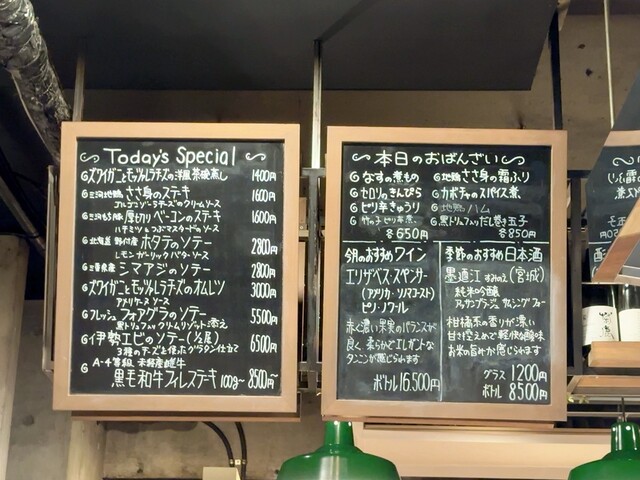 Today's Special
ズワイガニとモッツァレラチーズの洋風茶碗蒸し 1400円
三河地鶏 ささ身のステキ 1600円
ゴルゴンゾーラチーズのクリームソース
三河もち豚 厚切りベーコンのステキ 1600円
ハチミツ&つぶマスタードのソース
北海道 野付産 ホタテのソテー 2800円
レモンガーリックバターソース
三重県産 シマアジのソテー 2800円
ズワイガニとモッツァレラチーズのオムレツ 3000円
アメリケーヌソース
フレッシュ フォアグラのソテー 5500円
黒トリュフ入りクリームリゾット添え
伊勢エビのソテー(半尾) 6500円
3種のチーズを使ったグラタン仕立て
A-4等級 未経産雌牛
黒毛和牛フィレステキ 100g〜 8500円〜
本日のおばんざい
なすの煮もの
セロリのきんぴら
ピリ辛きゅうり
竹の子ピリ辛煮
各650円
地鶏ささ身の霜ふり
カボチャのスパイス煮
地鶏ハム
黒トリュフ入りだし巻き玉子
各850円
今月のおすすめワイン
エリザベス・スペンサー
(アメリカ・ソノマコースト)
ピノ・ノワール
赤く濃い果実のバランスが
良く、柔らかでエレガントな
タンニンが感じられます
ボトル16.500円
季節のおすすめ日本酒
墨廼江 すみのえ(宮城)
純米吟醸
アッサンブラージュ
柑橘系の香りが漂い
甘さ控えめで軽快な酸味
お米の旨みが感じられます
グラス 1200円
ボトル 8500円